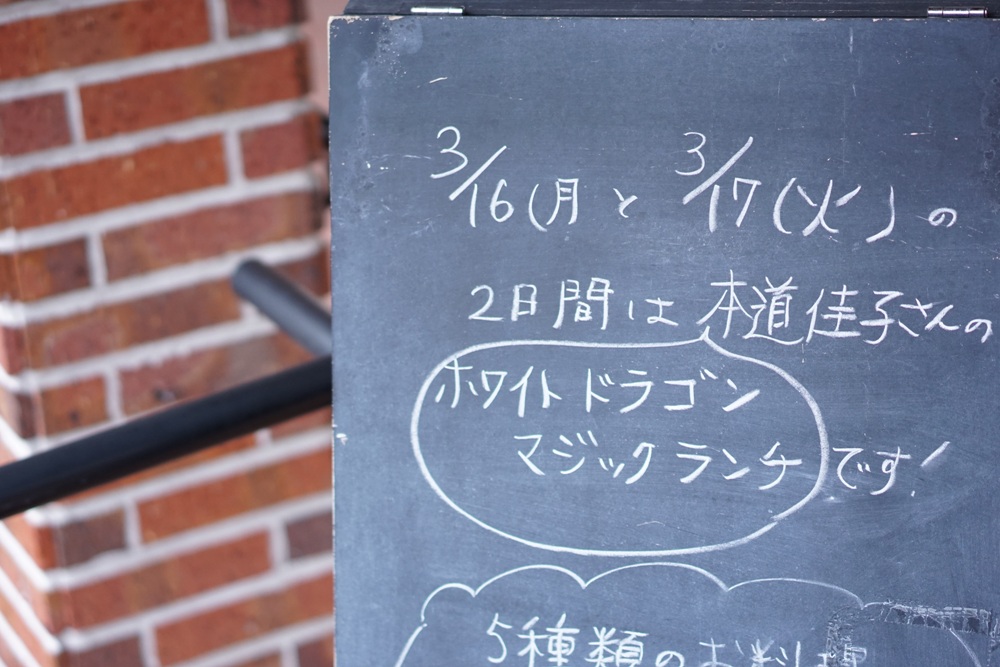 3/16(月と 3/17(火)の
2日間は 本道佳子さんの
ホワイト ドラゴン
マジック ランチ です!
5種類のお料理